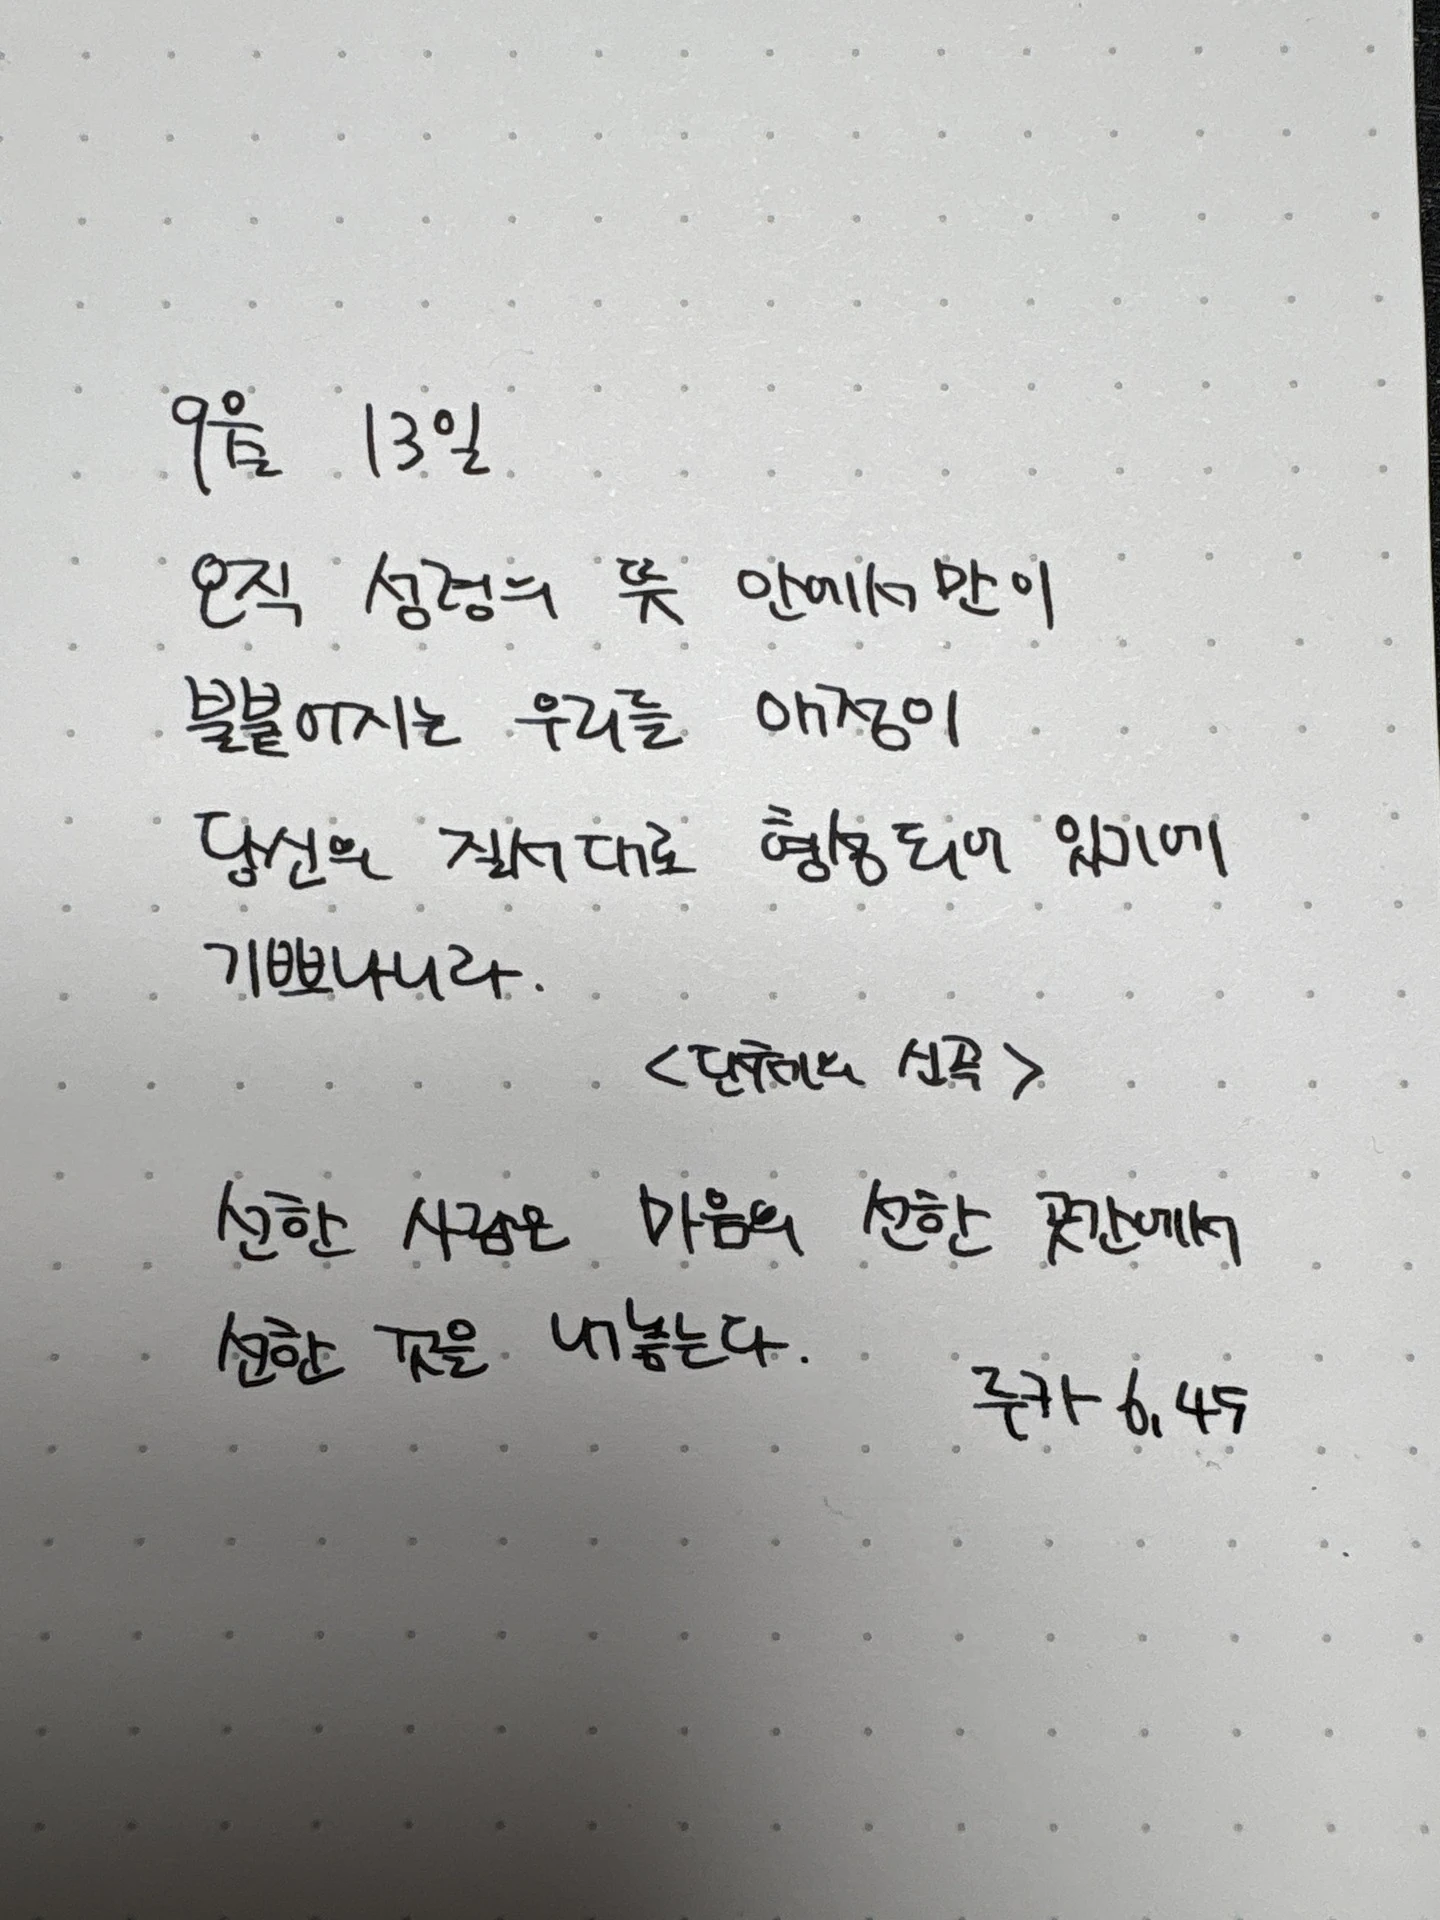 9월 13일
오직 성령의 뜻 안에서만이
불붙어지는 우리들 애정이
당신의 질서대로 형성되어 있기에
기쁘나니라.
<단테의 신곡>
선한 사람은 마음의 선한 곳간에서
선한 것을 내놓는다.
루카 6, 45